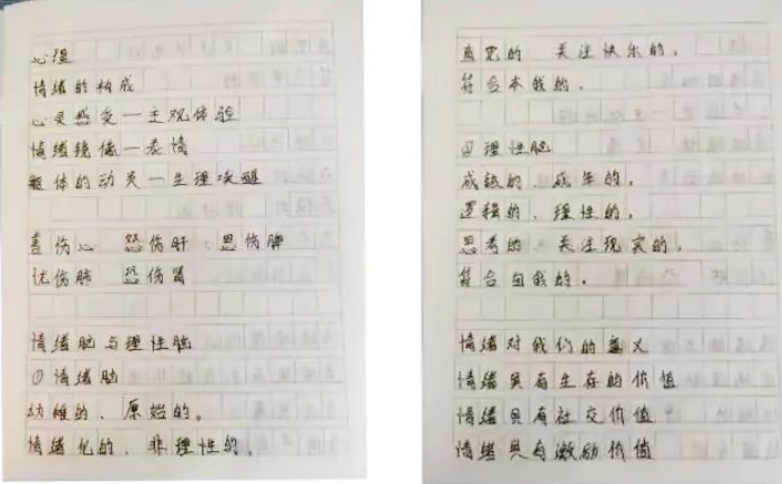 心理
情绪的构成
心灵感受一主观体验
情绪镜像一表情
躯体的动员一生理唤醒
喜伤心 怒伤肝 思伤脾
忧伤肺 恐伤肾
情绪脑与理性脑
①情绪脑
幼稚的、原始的。
情绪化的、非理性的。
直觉的 关注快乐的。
符合本我的。
②理性脑
成熟的、成年的。
逻辑的、理性的。
思考的、关注现实的。
符合自我的。
情绪对我们的意义
情绪具有生存的价值
情绪具有社交价值
情绪具有激励价值